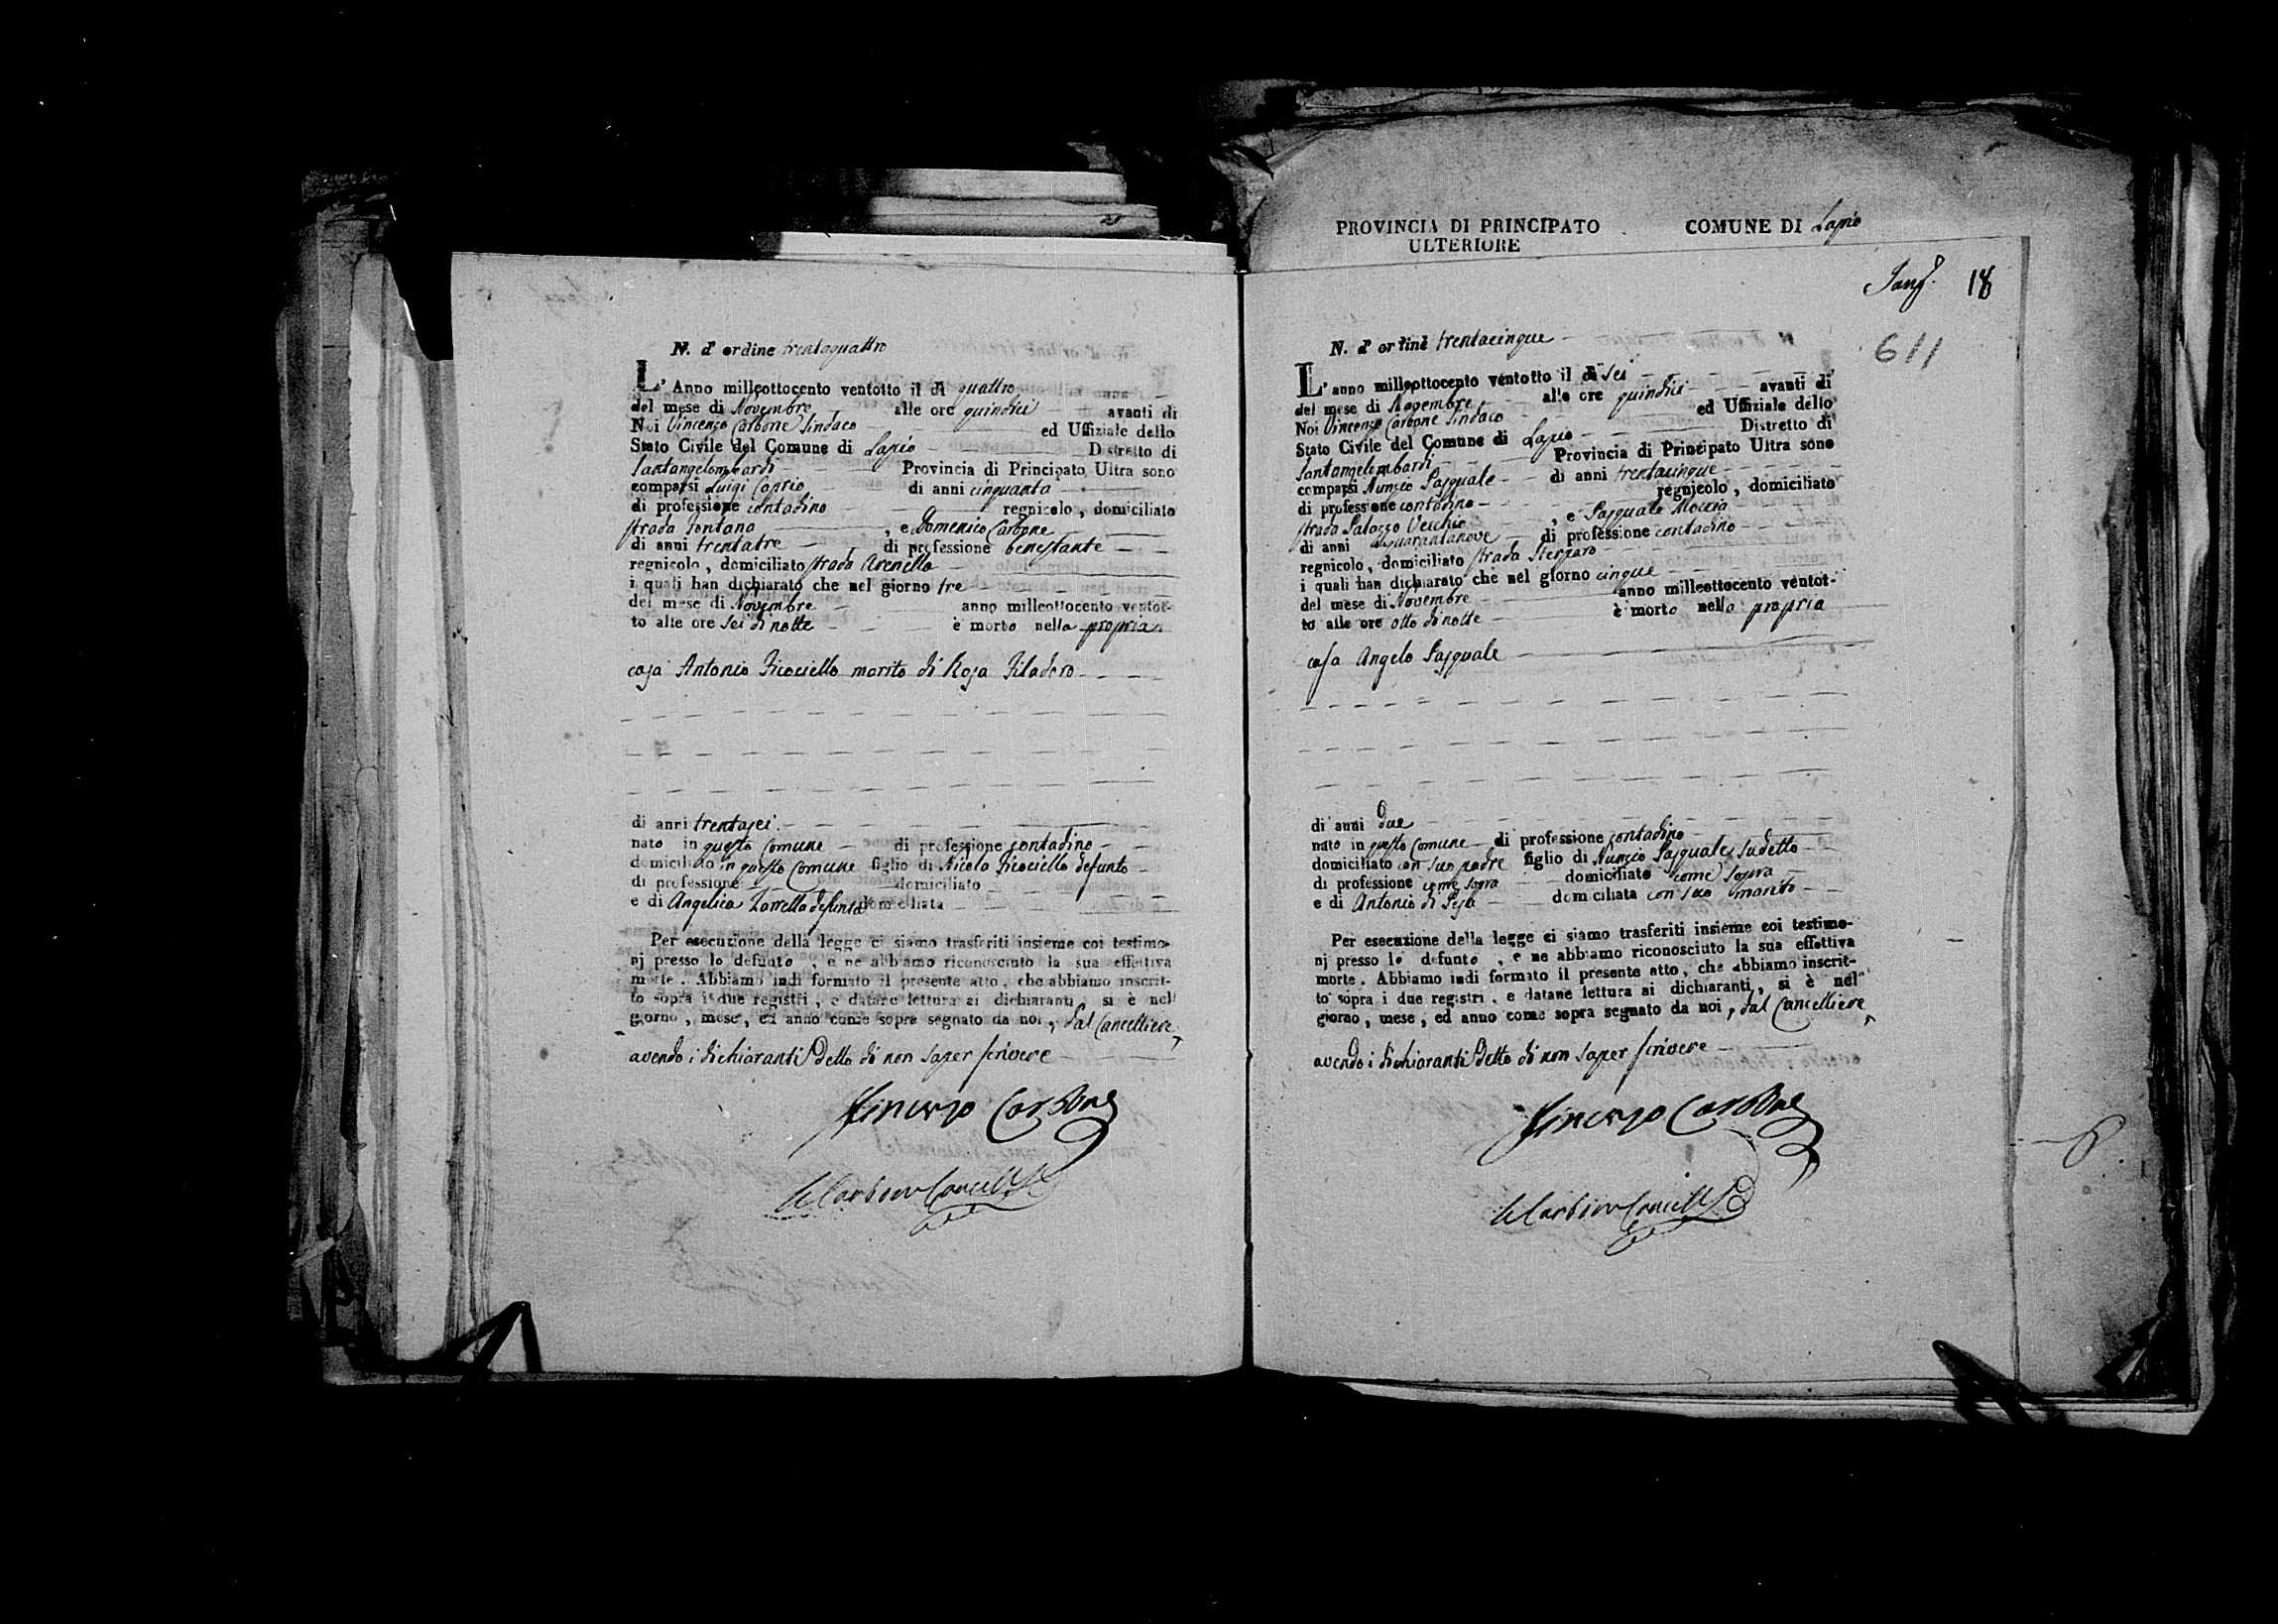 N. d'ordine trentaquattro
L'Anno milleottocento ventotto il dì quattro
del mese di Novembre alle ore quindici avanti di
Noi Vincenzo Carbone Sindaco ed Uffiziale dello
Stato Civile del Comune di Lapio Distretto di
Santangelombardi Provincia di Principato Ultra sono
comparsi Luigi Caprio di anni cinquanta
di professione contadino regnicolo, domiciliato
strada Fontana, e Domenico Carbone
di anni trentatre di professione benestante
regnicolo, domiciliato strada Arenella
i quali han dichiarato che nel giorno tre
del mese di Novembre anno milleottocento ventot-
to alle ore sei di notte è morto nella propria
casa Antonio Ficociello marito di Rosa Filadoro
di anni trentasei
nato in questo Comune di professione contadino
domiciliato in questo Comune figlio di Nicola Ficociello defunto
di professione domiciliato
e di Angelica Zarrella defunta domiciliata
Per esecuzione della legge ci siamo trasferiti insieme coi testimo-
nj presso lo defunto, e ne abbiamo riconosciuto la sua effettiva
morte. Abbiamo indi formato il presente atto, che abbiamo inscrit-
to sopra i due registri, e datane lettura ai dichiaranti, si è nel
giorno, mese, ed anno come sopra segnato da noi, dal Cancelliere,
avendo i dichiaranti detto di non saper scrivere
Vincenzo Carbone
PROVINCIA DI PRINCIPATO COMUNE DI Lapio
ULTERIORE
18
611
N. d'ordine trentacinque
L'anno milleottocento ventotto il dì sei
del mese di Novembre alle ore quindici avanti di
Noi Vincenzo Carbone Sindaco ed Uffiziale dello
Stato Civile del Comune di Lapio Distretto di
Santangelombardi Provincia di Principato Ultra sono
comparsi Nunzio Pasquale di anni trentacinque
di professione contadino regnicolo, domiciliato
strada Palazzo Vecchio, e Pasquale Moccia
di anni quarantanove di professione contadino
regnicolo, domiciliato strada Sterparo
i quali han dichiarato che nel giorno cinque
del mese di Novembre anno milleottocento ventot-
to alle ore otto di notte è morto nella propria
casa Angelo Pasquale
di anni due
nato in questo Comune di professione contadino
domiciliato con suo padre figlio di Nunzio Pasquale sudetto
di professione come sopra domiciliato come sopra
e di Antonia di domiciliata con suo marito
Per esecuzione della legge ci siamo trasferiti insieme coi testimo-
nj presso lo defunto, e ne abbiamo riconosciuto la sua effettiva
morte. Abbiamo indi formato il presente atto, che abbiamo inscrit-
to sopra i due registri, e datane lettura ai dichiaranti, si è nel
giorno, mese, ed anno come sopra segnato da noi, dal Cancelliere,
avendo i dichiaranti detto di non saper scrivere
Vincenzo Carbone